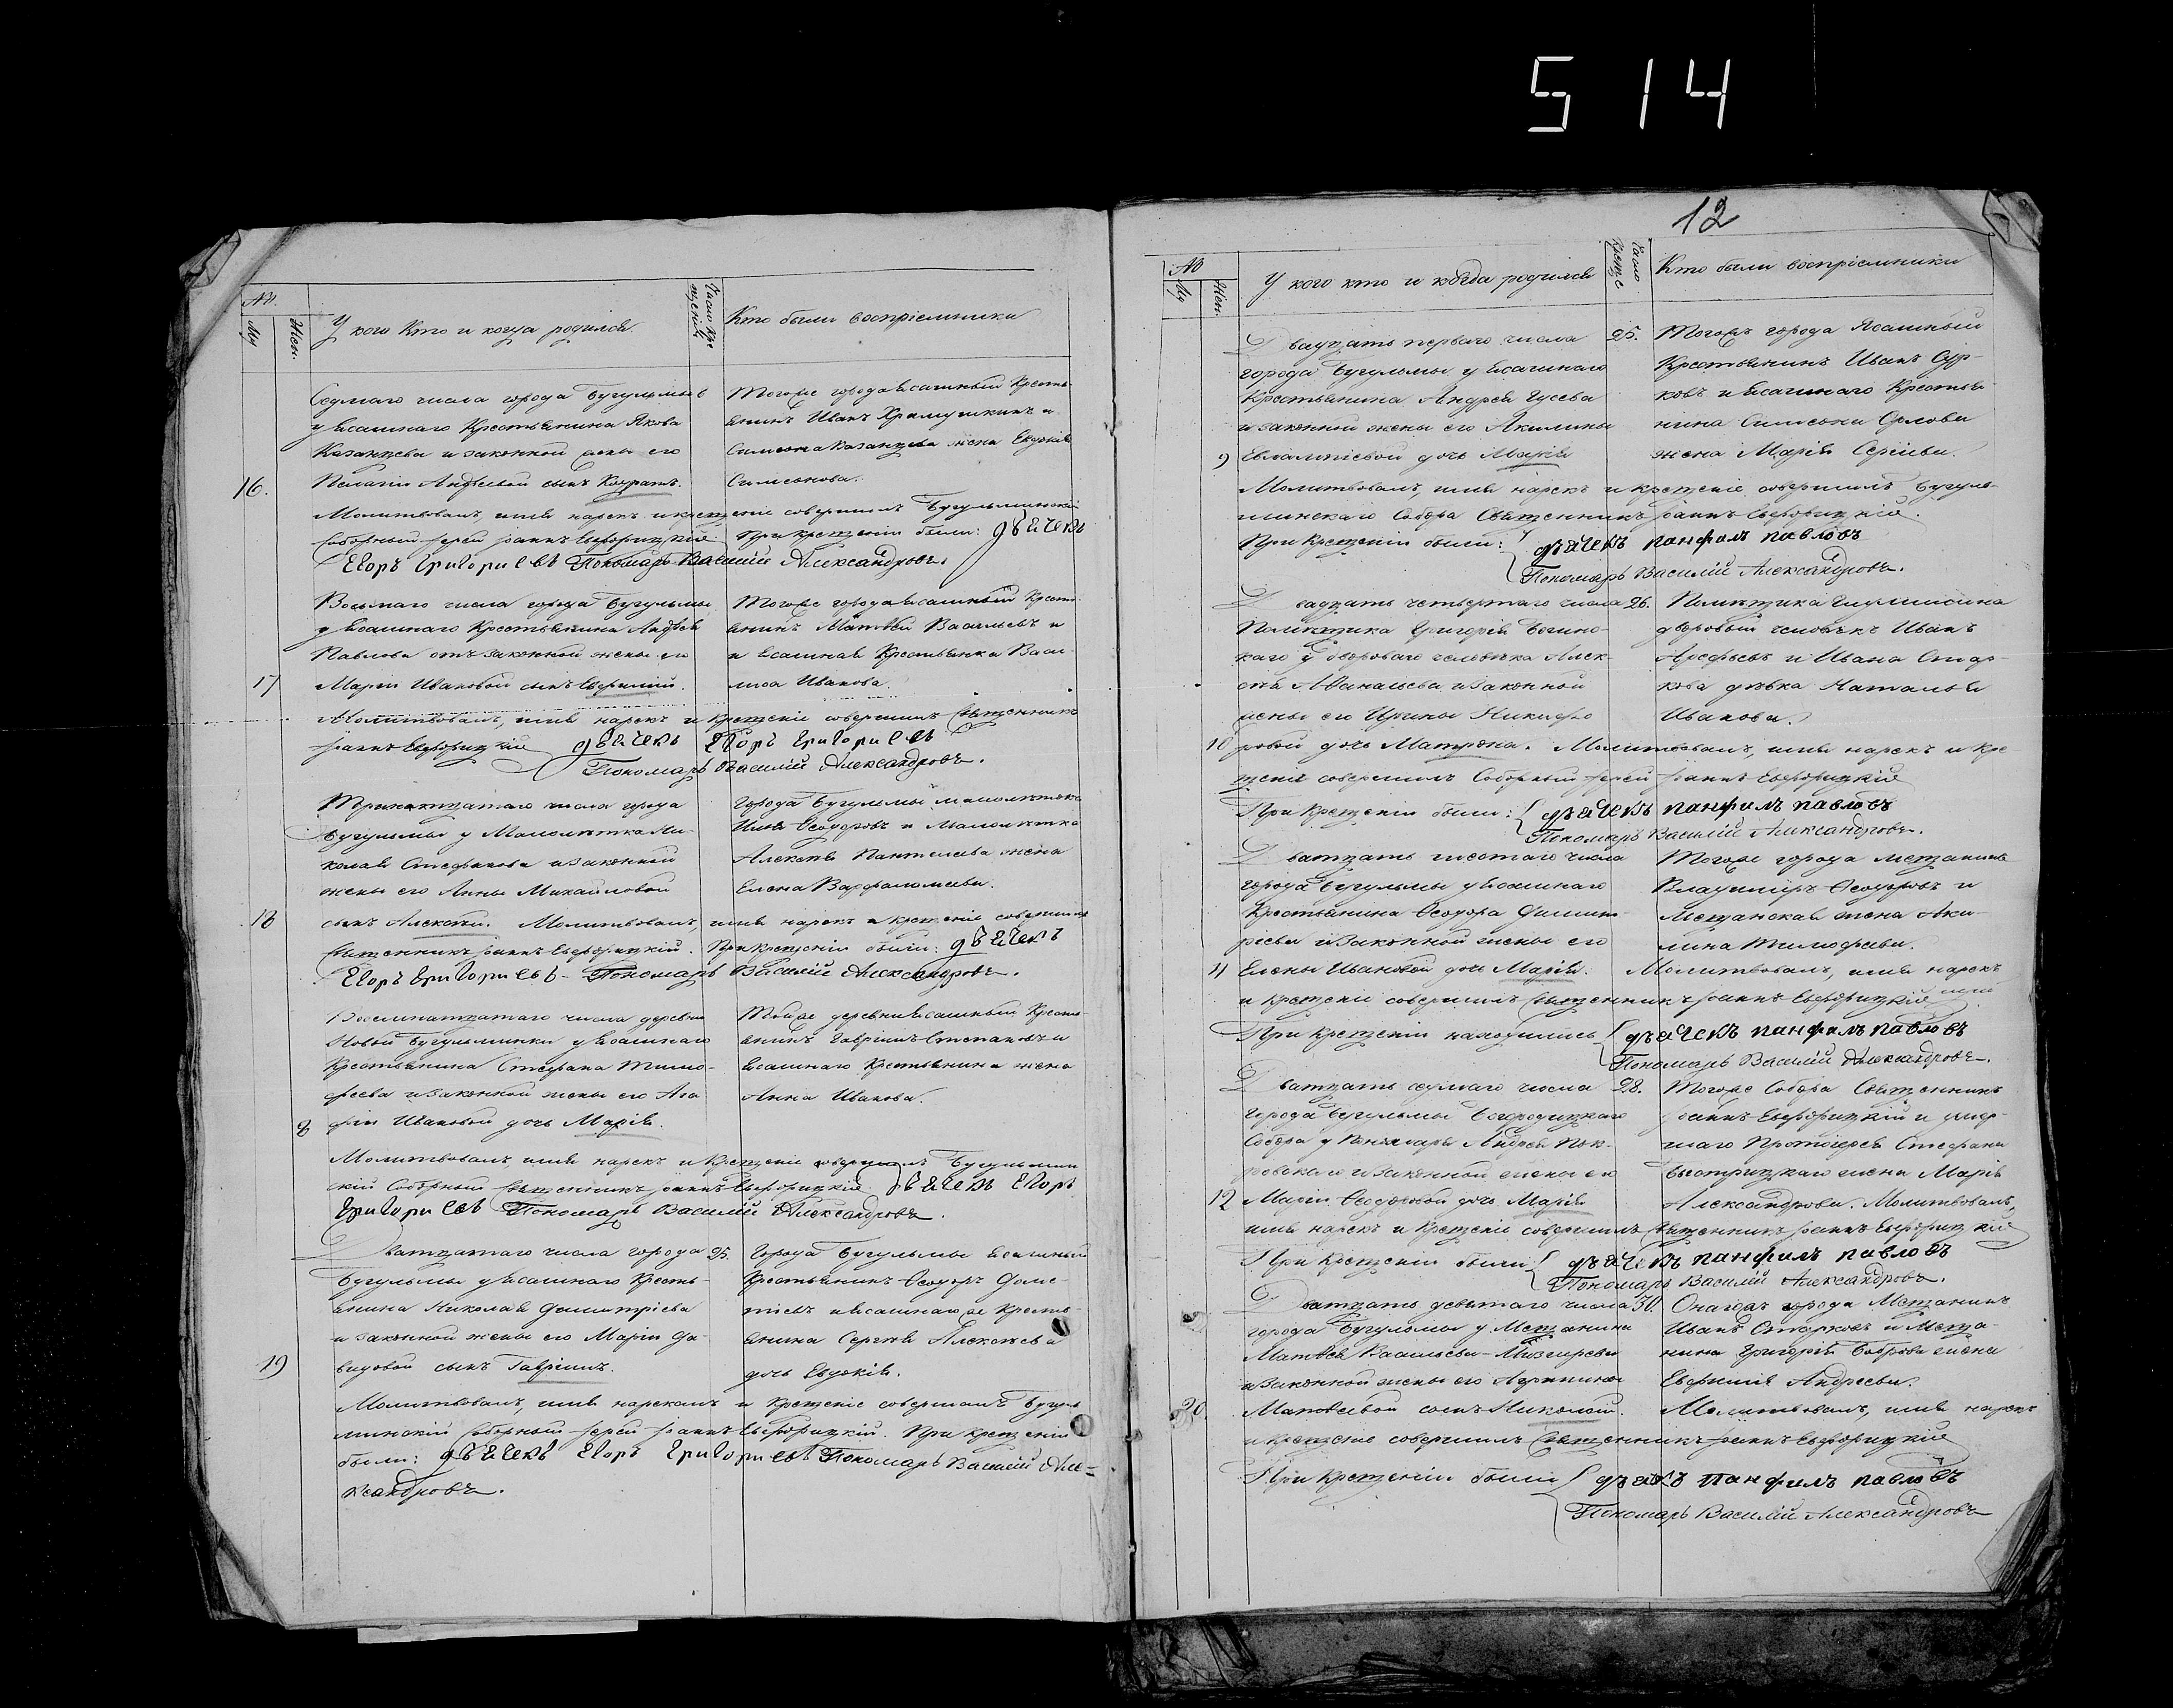 514
12
№
Му
Жен.
У кого Кто и когда родился.
Число Кре
щенія
Кто были воспріемники
Седмаго числа города Бугульмы
у Ясашнаго Крестьянина Якова
Казанцева и законной жены его
16. Пелагіи Андреевой сынъ
Тогоже города Ясашный Кресть
янинъ Иванъ и
Симеона Казанцева жена Евдокія
Симеонова.
Молитвовалъ, имя нарекъ и крещеніе совершилъ Бугульминскій
Соборный Іерей Іоаннъ При крещеніи были: дьячекъ
Егоръ Григорьевъ Пономарь Василій Александровъ.
Восьмаго числа города Бугульмы
у Ясашнаго Крестьянина Андрея
Павлова отъ законной жены его
17 Маріи Ивановой сынъ Евфимій.
Тогоже города Ясашный Кресть
янинъ Матвей Васильевъ и
и Ясашная Крестьянка Васи-
лиса Иванова.
Молитвовалъ, имя нарекъ и крещеніе совершилъ Священникъ
Іоаннъ дьячекъ Егоръ Григорьевъ
Пономарь Василій Александровъ.
числа города
Бугульмы у Малолетка Ни-
колая Стефанова и законной
жены его Анны Михайловой
Города Бугульмы малолетокъ
Илья Феодоровъ и Малолетка
Алексея Пантелеева жена
Елена Варфоломеева.
18 сынъ Алексей. Молитвовалъ, имя нарекъ и крещеніе совершилъ
Священникъ Іоаннъ При крещеніи были: дьячекъ
Егоръ Григорьевъ - Пономарь Василій Александровъ.
числа деревни
Новой Бугульминки у Ясашнаго
Крестьянина Стефана Тимо-
феева и законной жены его Ага
8 фіи Ивановой дочь Марія.
Тойже деревни Ясашный Кресть
янинъ Гавріилъ Степановъ и
Ясашнаго Крестьянина жена
Анна Иванова.
Молитвовалъ, имя нарекъ и Крещеніе совершилъ Бугульмин
скій Соборный Священникъ Іоаннъ дьячекъ Егоръ
Григорьевъ Пономарь Василій Александровъ.
Дватцатаго числа города 25.
Бугульмы у Ясашнаго Кресть-
янина Николая Димитріева
и законной жены его Маріи Да-
19 видовой сынъ Гавріилъ.
Города Бугульмы Ясашный
Крестьянинъ Феодоръ
и Ясашнагоже Кресть-
янина Сергея Алексеева
дочь Евдокія.
Молитвовалъ, имя нарекалъ и Крещеніе совершалъ Бугуль
минскій Соборный Іерей Іоаннъ При крещеніи
были: дьячекъ Егоръ Григорьевъ Пономарь Василій Але-
ксандровъ.
№
Му
Жен.
У кого кто и когда родился
Число
Креще
Кто были воспріемники
Двадцать перваго числа 25.
города Бугульмы у Ясашнаго
Крестьянина Андрея Гусева
и законной жены его Акилины
9 Евлампіевой дочь Марія
Тогожъ города Ясашный
Крестьянинъ Иванъ Сур-
ковъ и Ясашнаго Крестья-
нина Симеона Орлова
жена Марія
Молитвовалъ, имя нарекъ и крещеніе совершилъ Бугуль-
минскаго Собора Священникъ Іоаннъ
При Крещеніи были: дьячекъ панфилъ павловъ
Пономарь Василій Александровъ.
Двадцать четвертаго числа 26.
Помещика Григорія
каго у двороваго человека Алек-
сея Афанасьева и законной
жены его Ирины Никифо
Помещика
дворовый человекъ Иванъ
Арефьевъ и Ивана
девка Наталья
Иванова.
10 ровой дочь Матрона. Молитвовалъ, имя нарекъ и Кре-
щеніе совершилъ Соборный Іерей Іоаннъ
При Крещеніи были: дьячекъ панфилъ павловъ
Пономарь Василій Александровъ.
Дватцать шестаго числа
города Бугульмы у Ясашнаго
Крестьянина Феодора Димит-
ріева и Законной жены его
Тогоже города мещанинъ
Владиміръ Феодоровъ и
Мещанская жена Аки-
лина Тимофеева.
11 Елены Ивановой дочь Марія. Молитвовалъ, имя нарекъ
и крещеніе совершилъ Священникъ Іоаннъ
При Крещеніи находились дьячекъ панфилъ павловъ
Пономарь Василій Александровъ.
Дватцать седмаго числа 28.
города Бугульмы Богородицкаго
Собора у Пономаря Андрея Пок-
ровскаго и законной жены его
12 Маріи Феодоровой дочь Марія
Тогоже Собора Священникъ
Іоаннъ и умер-
шаго Протоіерея Стефана
жена Марія
Александрова. Молитвовалъ,
имя нарекъ и Крещеніе совершилъ Священникъ Іоаннъ
При Крещеніи были дьячекъ панфилъ павловъ
Пономарь Василій Александровъ.
Дватцать девятаго числа 30.
города Бугульмы у Мещанина
Матвея Васильева
и Законной жены его
Онагожъ города Мещанинъ
Иванъ Старковъ и Меща-
нина Григорія Боброва жена
Евфимія Андреева.
20. Матвеевой сынъ Николай. Молитвовалъ, имя нарекъ
и крещеніе совершилъ Священникъ Іоаннъ
При Крещеніи были дьячекъ панфилъ павловъ
Пономарь Василій Александровъ